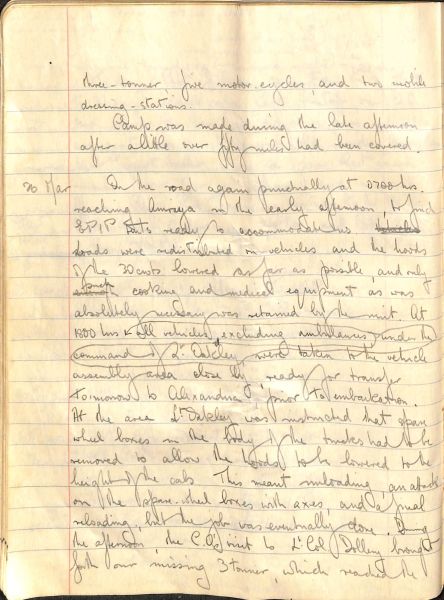 three-tonner, five motor-cycles, and two mobile
dressing-stations.
Camp was made during the late afternoon
after a little over fifty miles had been covered.
26 Mar On the road again punctually at 0700 hrs.
reaching Amreya in the early afternoon to find
EPIP tents ready to accommodate us
Loads were redistributed on vehicles and the hoods
of the 30 cwts lowered as far as possible, and only
such cooking and medical equipment as was
absolutely necessary was retained by the unit. At
1800 hrs all vehicles, excluding ambulances, under the
command of Lt Oakley were taken to the vehicle
assembly area close by, ready for transfer
tomorrow to Alexandria prior to embarkation.
At the area Lt Oakley was instructed that spare
wheel boxes in the body of the trucks had to be
removed to allow the hoods to be lowered to the
height of the cabs. This meant unloading, an attack
on the spare-wheel boxes with axes, and a final
reloading, but the job was eventually done. During
the afternoon, the C.O's visit to Lt Col brought
forth our missing 3 tonner, which reached the